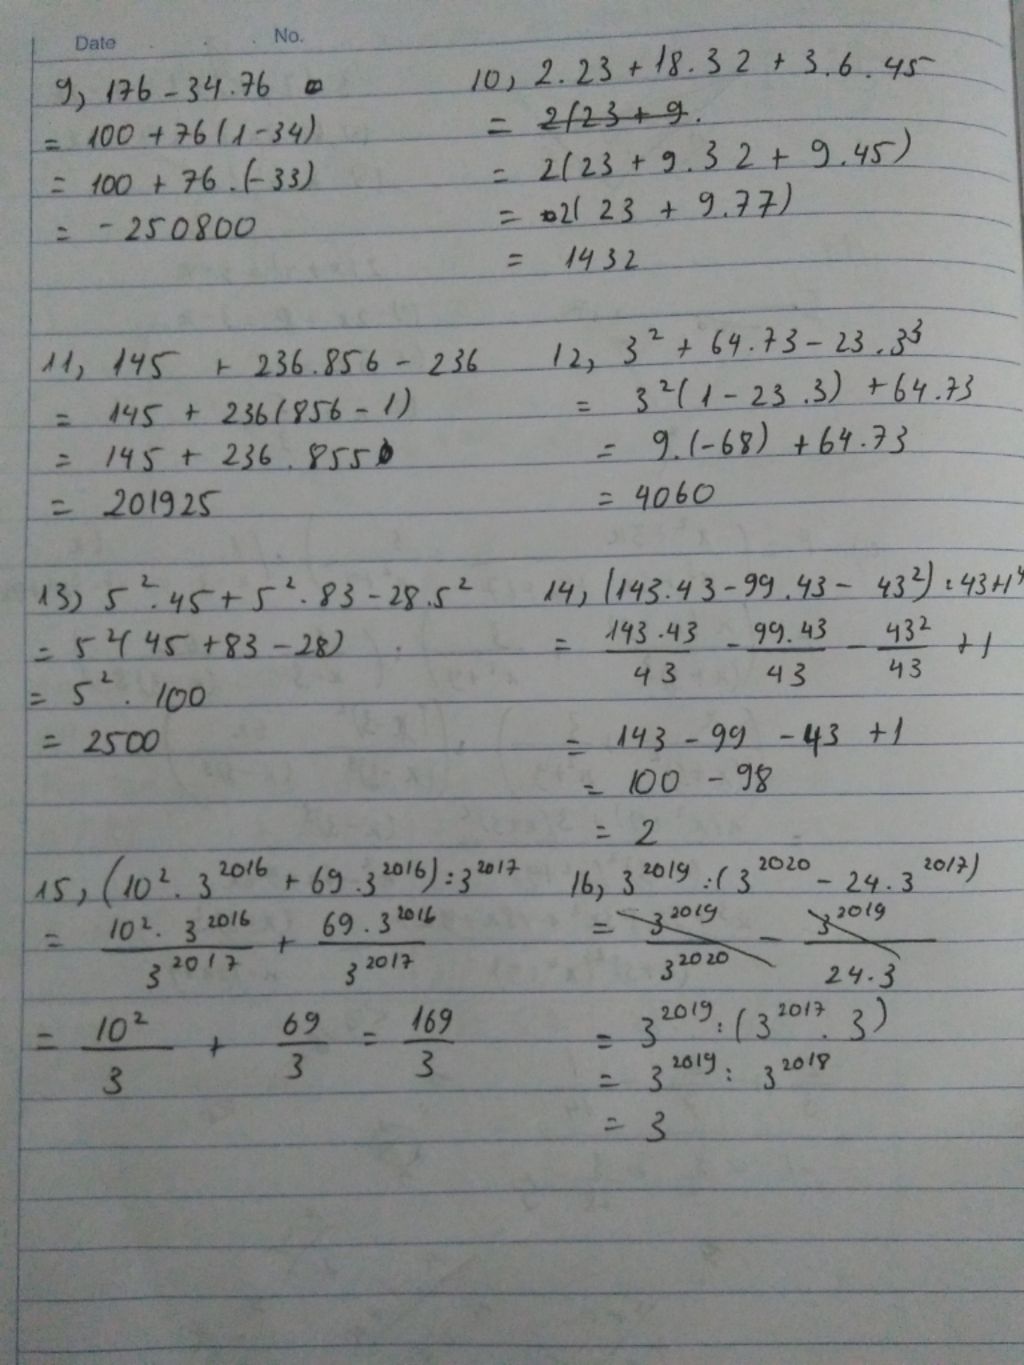 Date No.
9, 176 - 34.76
= 100 + 76(1-34)
= 100 + 76.(-33)
= -250800
10, 2.23 + 18.32 + 3.6.45
= 2(23 + 9.
= 2(23 + 9.32 + 9.45)
= 2(23 + 9.77)
= 1432
11, 145 + 236.856 - 236
= 145 + 236(856-1)
= 145 + 236.855
= 201925
12, 3² + 64.73 - 23.3³
= 3²(1-23.3) + 64.73
= 9.(-68) + 64.73
= 4060
13) 5².45 + 5².83 - 28.5²
= 5²(45 + 83 - 28)
= 5².100
= 2500
14, (143.43 - 99.43 - 43²):43+1⁴
= 143.43/43 - 99.43/43 - 43²/43 + 1
= 143 - 99 - 43 + 1
= 100 - 98
= 2
15, (10².3²⁰¹⁶ + 69.3²⁰¹⁶):3²⁰¹⁷
= 10².3²⁰¹⁶/3²⁰¹⁷ + 69.3²⁰¹⁶/3²⁰¹⁷
= 10²/3 + 69/3 = 169/3
16, 3²⁰¹⁹:(3²⁰²⁰ - 24.3²⁰¹⁷)
= 3²⁰¹⁹/3²⁰²⁰ - 3²⁰¹⁹/24.3
= 3²⁰¹⁹:(3²⁰¹⁷.3)
= 3²⁰¹⁹:3²⁰¹⁸
= 3